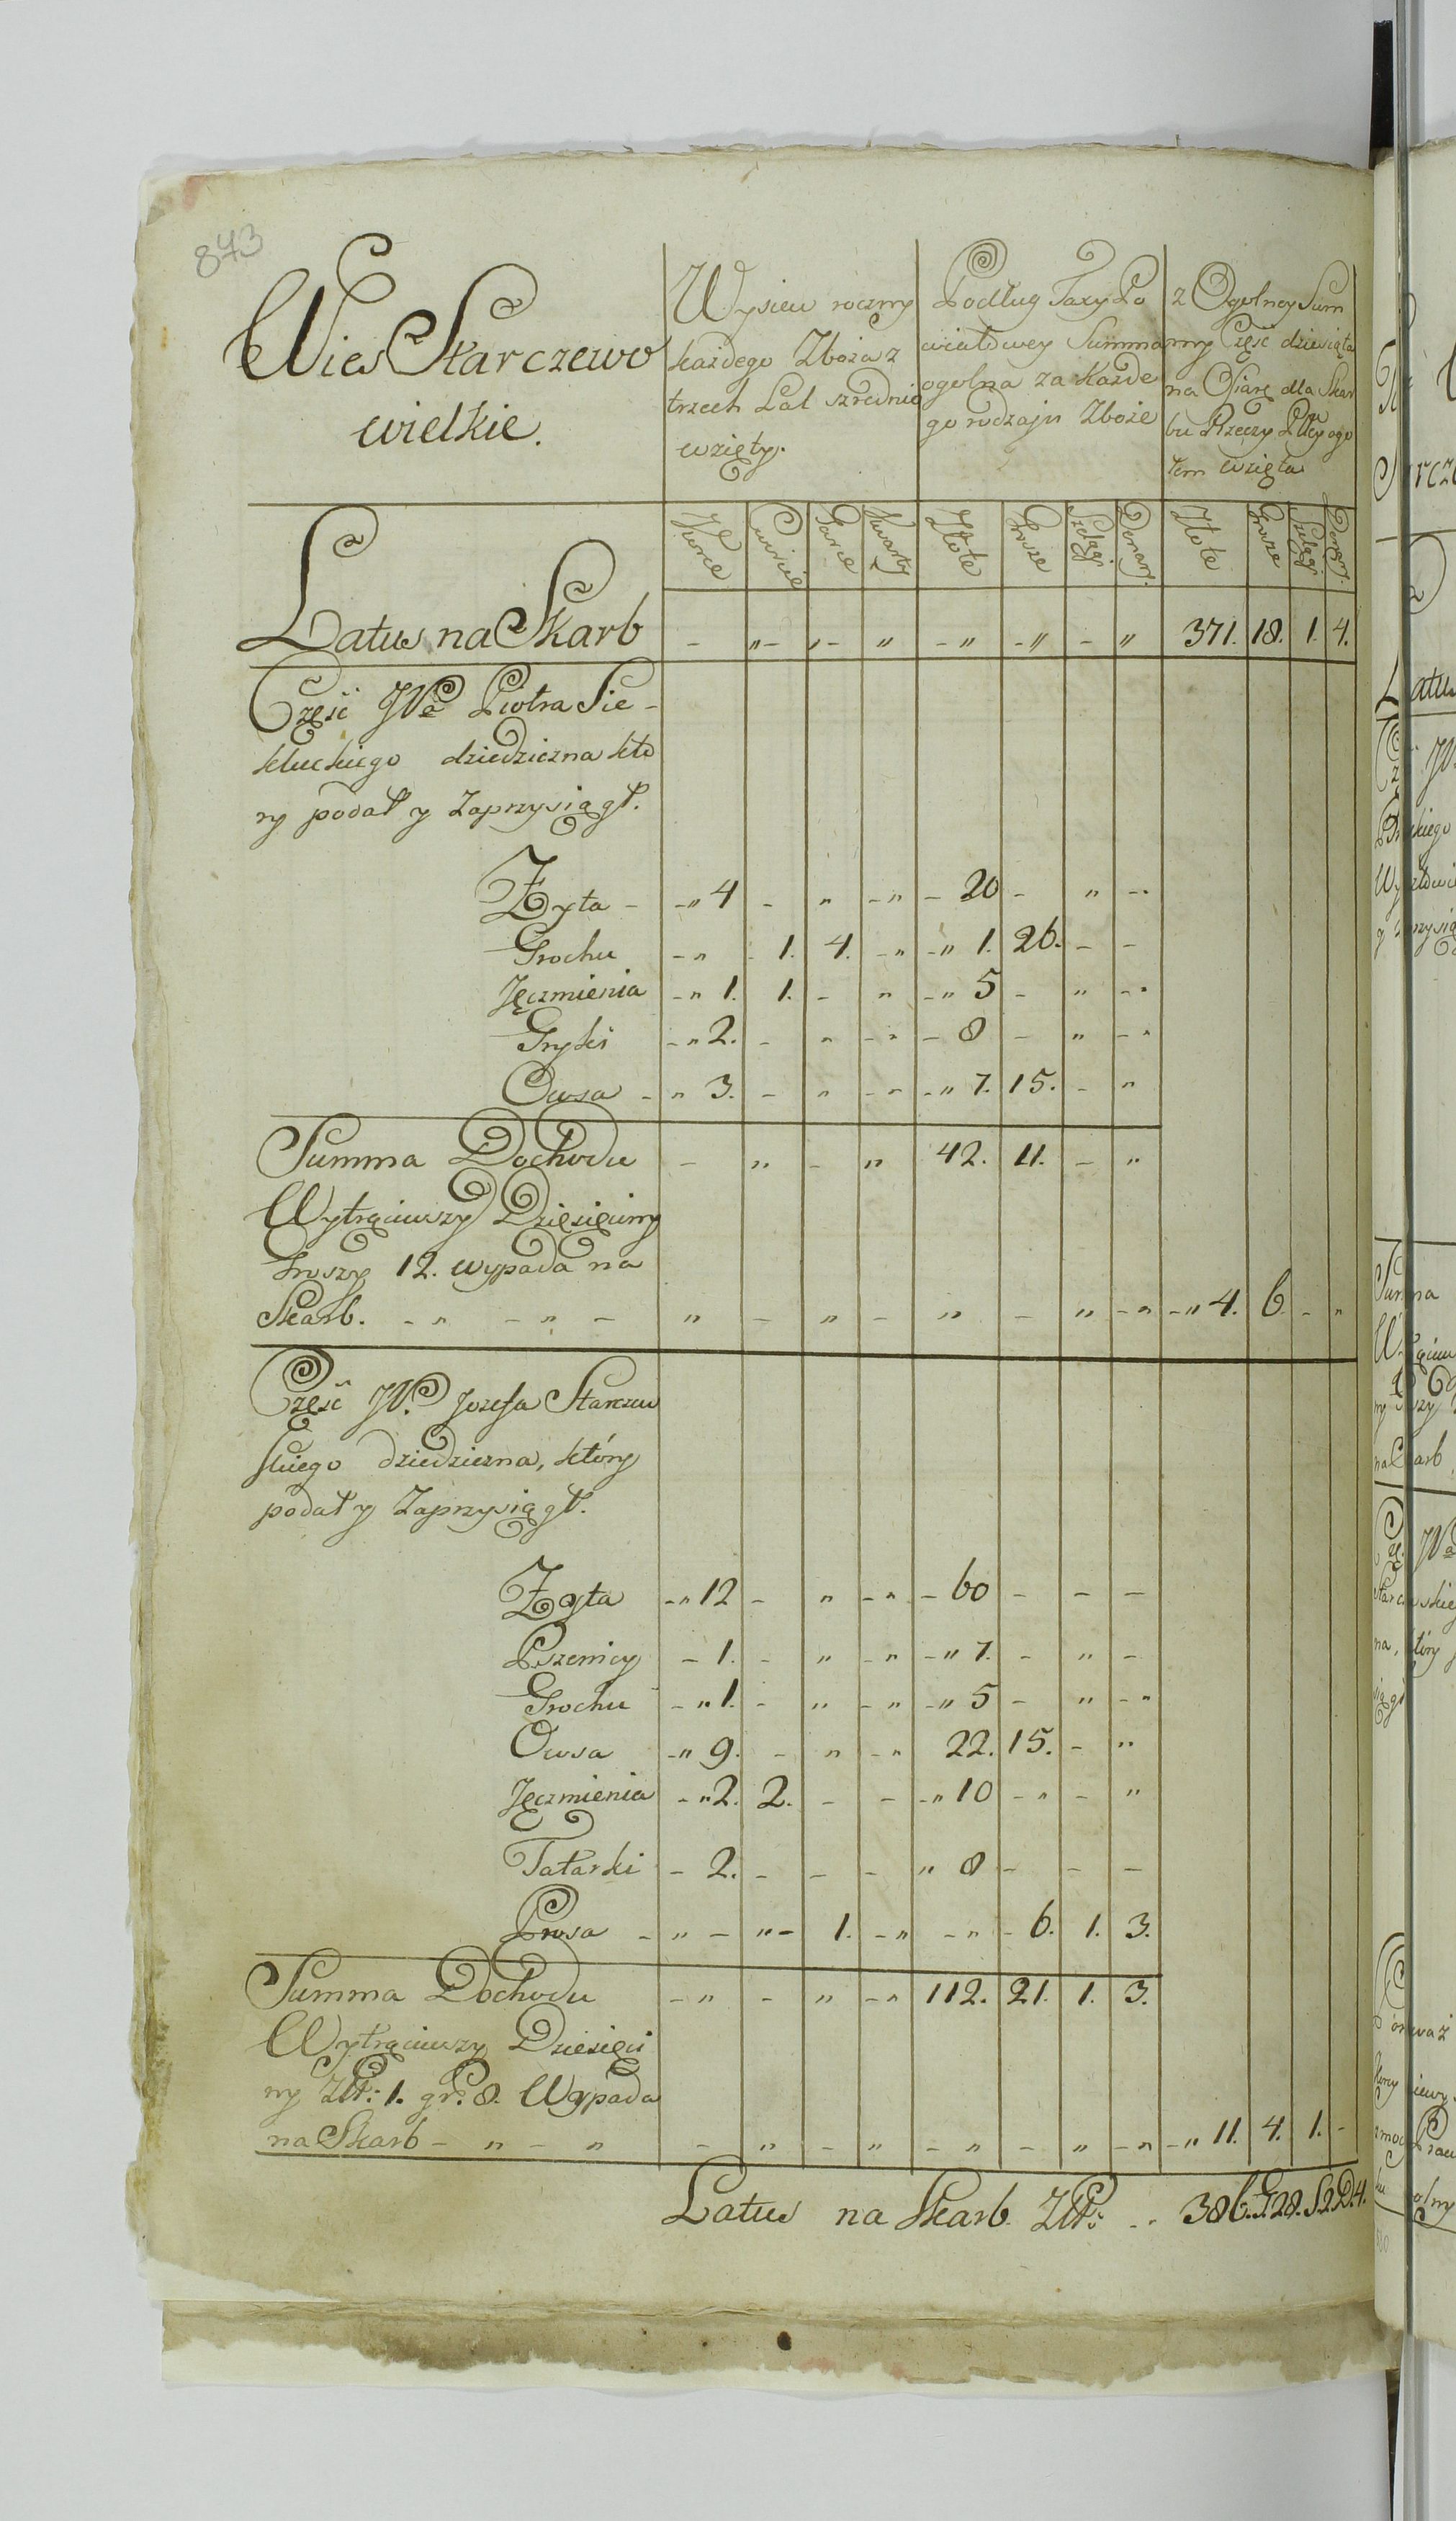 843
Wies Starczewo
wielkie.
Wysiew roczny
każdego Zboża z
trzech Lat szrednio
wzięty.
Podług Taxy Po
wiatowey Summa
ogolna za Każde
go rodzaju Zboże
z Ogolney Sum
my Część dziesiąta
na Ofiarę dla Skar
bu Rzeczy Plltey ogo
łem wzięta
Korce Cwircie Garce Kwarty Złote Grosze Szelągi Denary. Złote Grosze Szelągi Denary.
Latus na Skarb - „ - „ - „ - „ - „ - „ 371. 18. 1. 4.
Część JPa Piotra Sie-
kluckiego dziedziczna kto
ry podał y Zaprzysiągł.
Zyta - - „ 4 - „ - „ - 20 - „ - „
Grochu - „ - 1. 4. - „ - „ 1. 26. - -
Jęczmienia - „ 1. 1. - „ - „ 5 - „ - „
Gryki - „ 2. - „ - „ - 8 - „ - „
Owsa - „ 3. - „ - „ - „ 7. 15. - „
Summa Dochodu - „ - „ 42. 11. - „
Wytrąciwszy Dziesięciny
Groszy 12. wypada na
Skarb. - „ - „ - „ - „ - „ - „ - „ - „ 4. 6. - „
Część JP. Jozefa Starczew
skiego dziedziczna, który
podał y Zaprzysiągł.
Zyta - „ 12 - „ - „ - 60 - - -
Pszenicy - 1. - „ - „ - „ 7. - „ -
Grochu - „ 1. - „ - „ - „ 5 - „ - „
Owsa - „ 9. - „ - „ 22. 15. - „
Jęczmienia - „ 2. 2. - - - „ 10 - „ - „
Tatarki - 2. - - - „ 8 - - -
Prosa - „ - „ - 1. - „ - „ - 6. 1. 3.
Summa Dochodu - „ - „ - „ 112. 21. 1. 3.
Wytrąciwszy Dziesięci
ny Złt: 1. gr: 8. Wypada
na Skarb - „ - „ - „ - „ - „ - „ - „ - „ 11. 4. 1. -
Latus na Skarb Złt: - - 386. G 28. S 2. D. 4.